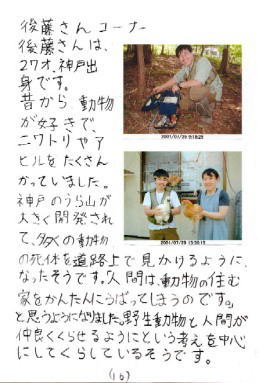 後藤さんコーナー
後藤さんは、
27才、神戸出
身です。
昔から、動物
が好きで、
ニワトリやア
ヒルをたくさん
かっていました。
神戸のうら山が
大きく開発され
て、多くの動物
の死体を道路上で見かけるように
なったそうです。「人間は、動物の住む
家をかんたんにうばってしまうのです。」
と思うようになりました。野生動物と人間が
仲良くくらせるようにという考えを中心
にしてくらしているそうです。
(16)
2001/07/29
2001/07/29